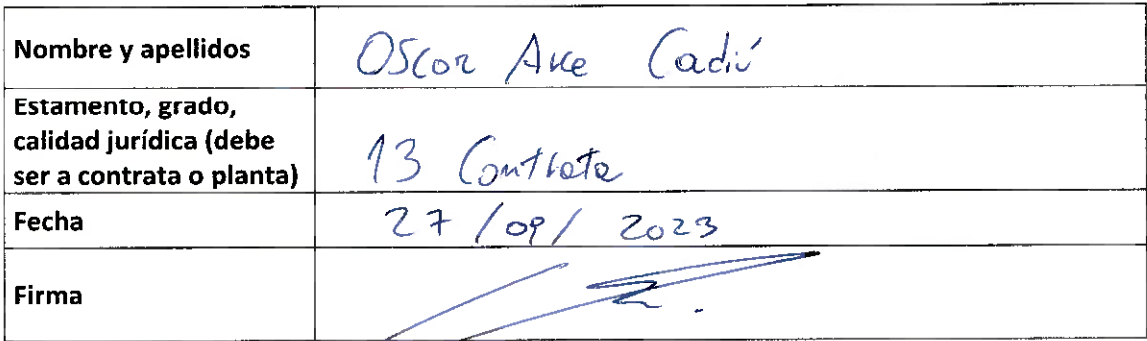 Nombre y apellidos
Oscar Arce Cadiú
Estamento, grado,
calidad jurídica (debe
ser a contrata o planta)
13 Contrata
Fecha
27/09/2023
Firma